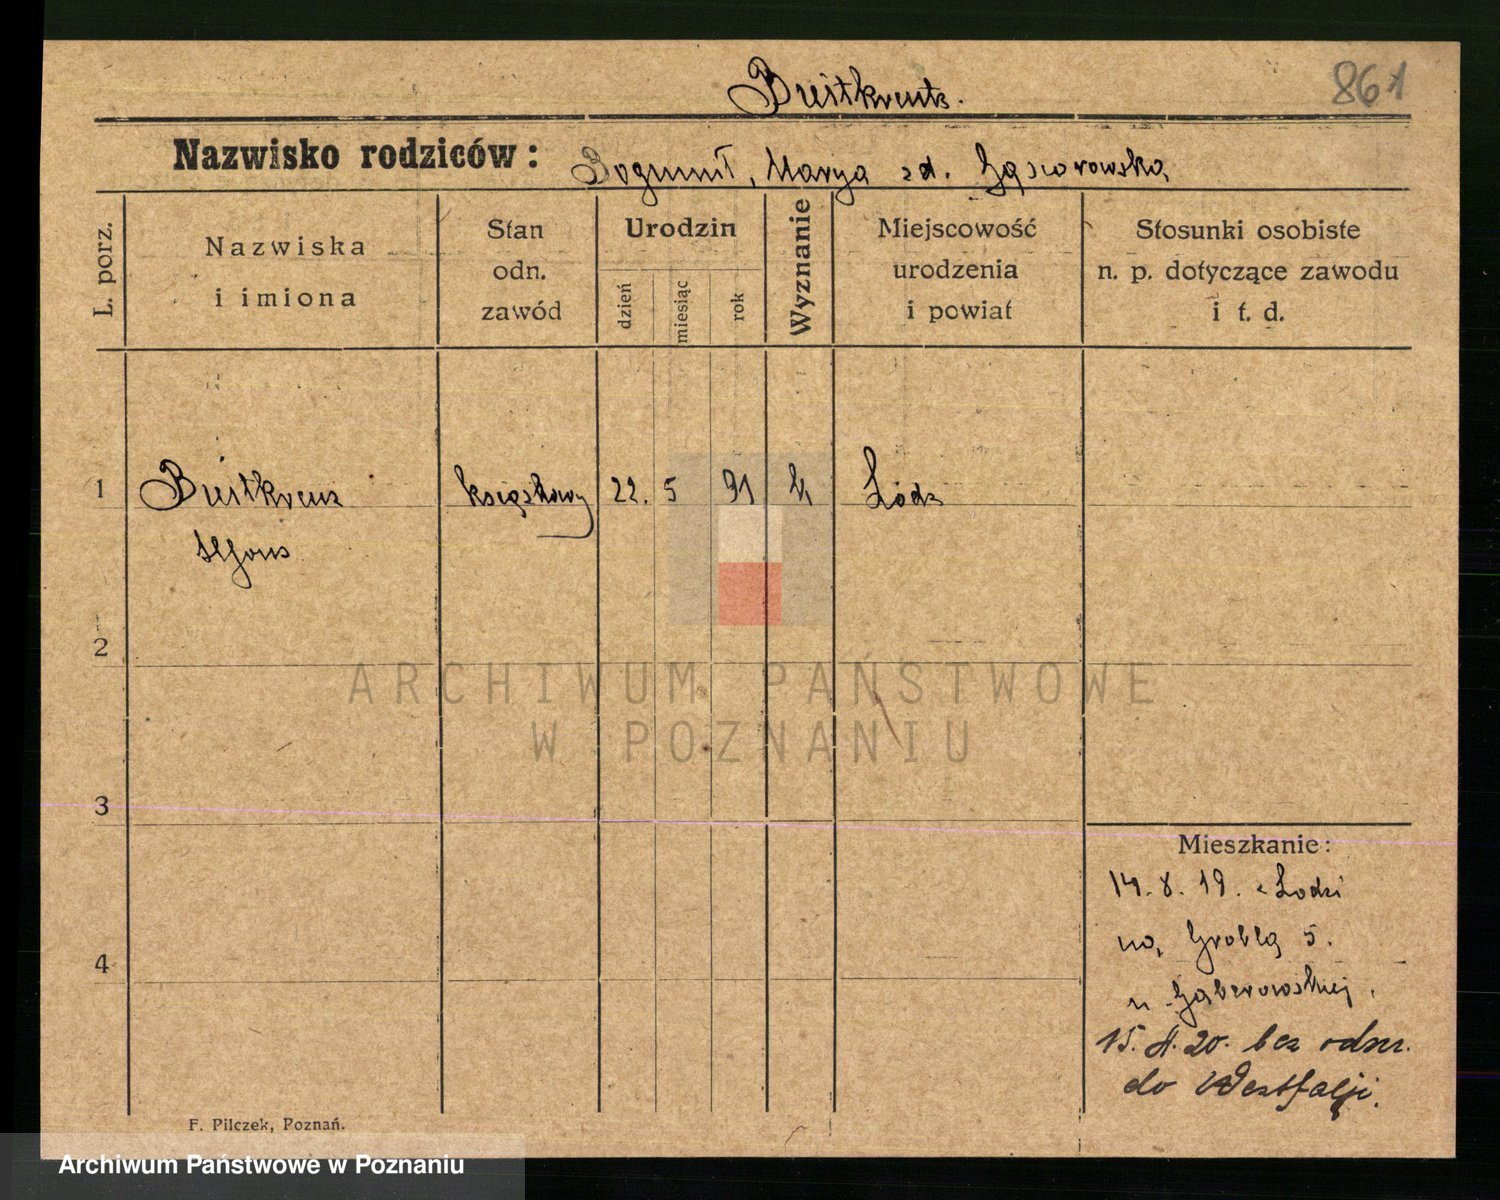 861
Nazwisko rodziców: Bogumił, Marya zd. Gąsiorowska
L. porz.
Nazwiska
i imiona
Stan
odn.
zawód
Urodzin
dzień
miesiąc
rok
Wyznanie
Miejscowość
urodzenia
i powiat
Stosunki osobiste
n. p. dotyczące zawodu
i t. d.
1 Breitkreuz księgkowy 22. 5 91 Łódź
Alfons
2
3
4
Mieszkanie:
14. 8. 19. z Łodzi
na Groblą 5.
u
15. 20. bez odm.
do Westfalji.
F. Pilczek, Poznań.
ARCHIWUM PAŃSTWOWE
W POZNANIU
Archiwum Państwowe w Poznaniu